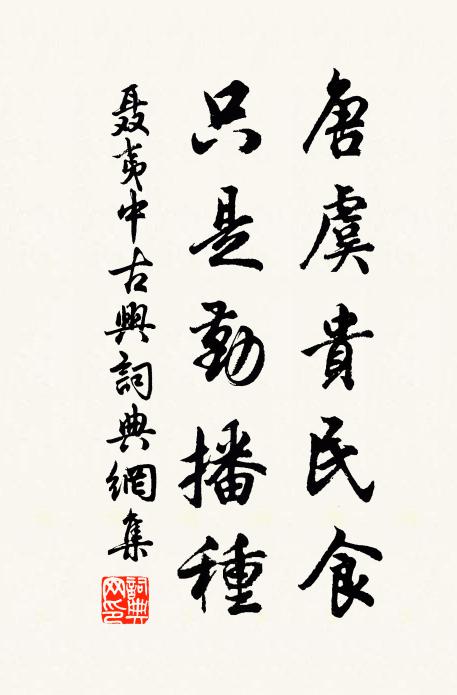 唐虞貴民食
只是勤播種
聶夷中古典詞典網集
詞典網印